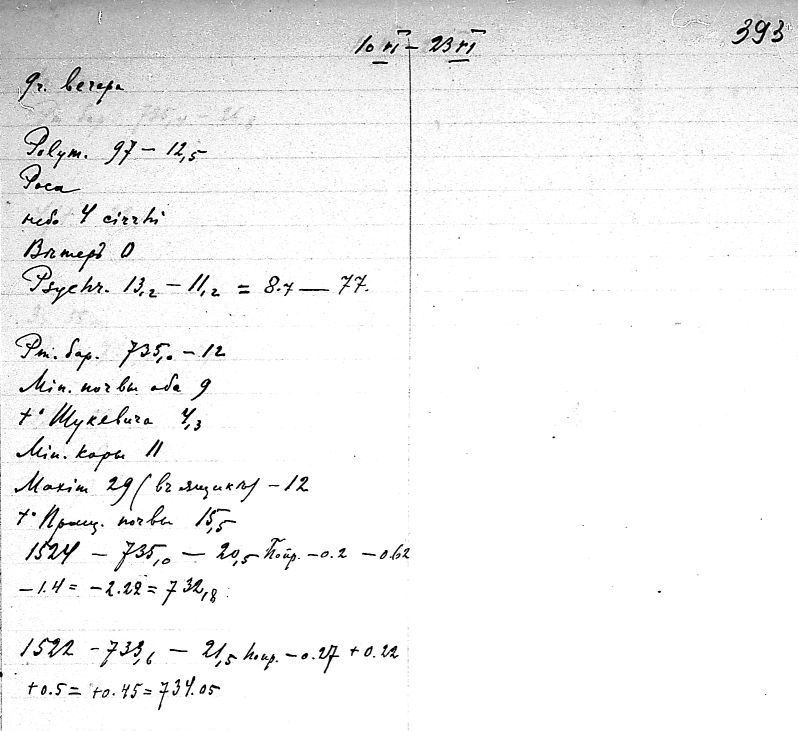 393
10 VI – 23 VI
9ч. вечера
Polym. 97 – 12,5
Роса
небо 4 cirrhi
Вѣтеръ 0
Psychr. 13,2 – 11,2 = 8.7 — 77.
Рт. бар. 735,0 – 12
Min. почвы оба 9
t° Шукевича 4,3
Min. коры 11
Maxim 29 (въ ящикѣ) – 12
t° почвы 15,5
1524 – 735,0 – 20,5 Попр. – 0.2 – 0.62
– 1.4 = – 2.22 = 732,8
1522 – 733,6 – 21,5 Попр. – 0.27 + 0.22
+ 0.5 = + 0.45 = 734.05